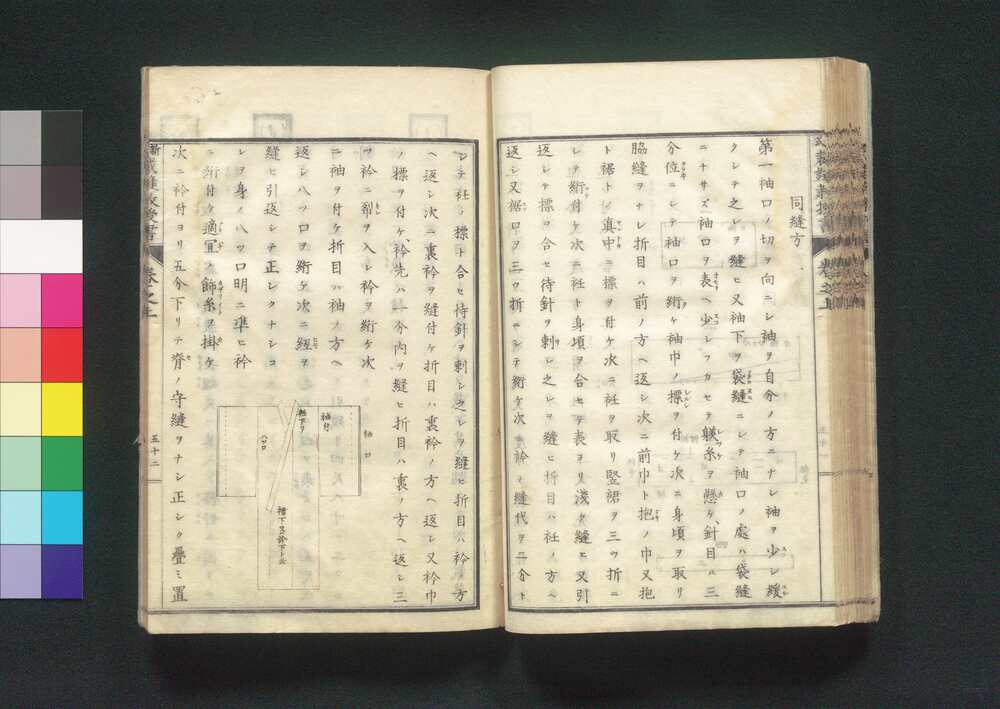 同縫方
第一袖口ノ切ヲ向ニシ袖ヲ自分ノ方ニナシ袖ヲ少シ緩
クシテ之レヲ縫ヒ又袖下ヲ袋縫ニシテ袖口ノ處ハ袋縫
ニナサズ袖口ヲ表ヘ少シフカセテ躾糸ヲ懸ケ針目ハ三
分位ニシテ袖口ヲ絎ケ袖巾ノ標ヲ付ケ次ニ身頃ヲ取リ
脇縫ヲナシ折目ハ前ノ方ヘ返シ次ニ前巾ト抱ノ巾又抱
ト裾ト眞中ニ標ヲ付ケ次ニ衽ヲ取リ竪褄ヲ三ツ折ニ
シテ絎付ケ次ニ衽ト身頃ヲ合セ表ヲリ浅ク縫ヒ又引
返シテ標ヲ合セ待針ヲ刺シ之レヲ縫ヒ折目ハ衽ノ方ヘ
返シ又裾口ヲ三ツ折ニシテ絎ケ次ニ衿ノ縫代ヲ二分ト
シテ衽ノ標ト合セ待針ヲ刺シ之レヲ縫ヒ折目ハ衿ノ方
ヘ返シ次ニ裏衿ヲ縫付ケ折目ハ裏衿ノ方ヘ返シ又衿巾
ノ標ヲ付ケ衿先ハ一分内ヲ縫ヒ折目ハ裏ノ方ヘ返シ三
ツ衿ニ切ヲ入レ衿ヲ絎ケ次
ニ袖ヲ付ケ折目ハ袖ノ方ヘ
返シ八ツ口ヲ絎ケ次ニ紐ヲ
縫ヒ引返シテ正シクナシコ
レヲ身ノ八ツ口明ニ準ヒ衿
ニ絎付ケ適宜ノ飾糸ヲ掛ケ
次ニ衿付ヨリ五分下リテ脊ノ守縫ヲナシ正シク疊ミ置
袖口
袖付
衽下リ
八ツ口
巻之上
五十二